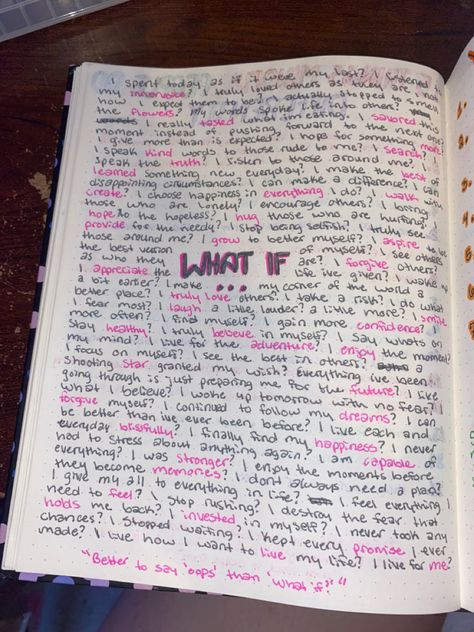 I spent today as if it were my last? I listened to
my innervoice? I truly loved others as they are not
how I expect them to be? I actually stopped to smell
the flowers? My words spoke life into others?
I really tasted what I'm eating? I savored this
moment instead of pushing forward to the next one?
I give more than is expected? I hope for something more?
I speak kind words to those rude to me? I search?
Speak the truth? I listen to those around me? I
learned something new everyday? I make the best of
disappointing circumstances? I can make a difference? I can
create? I choose happiness in everything I do? I walk with
those who are lonely? I encourage others? I bring
hope to the hopeless? I hug those who are hurting?
provide for the needy? I stop being selfish? I truly see
those around me? I grow to better myself? I aspire to be
the best version of myself? I see others
as who they WHAT IF are? I forgive others?
I appreciate the ... life I've given? I wake up
a bit earlier? I make my corner of the world a
better place? I truly love others? I take a risk? I do what
I fear most? I laugh a little louder? a little more? I smile
more often? I find myself? I gain more confidence?
Stay healthy? I truly believe in myself? I say whats on
my mind? I live for the adventure? I enjoy the moment?
I focus on myself? I see the best in others? a
shooting star granted my wish? Everything ive been
going through is just preparing me for the future? I live
what I believe? I woke up tomorrow with no fear? I
forgive myself? I continued to follow my dreams? I can
be better than ive ever been before? I live each and
everyday blissfully? I finally find my happiness? I never
had to stress about anything again? I am capable of
everything? I was stronger? I enjoy the moments before
they become memories? I dont always need a plan?
I give my all to everything in life? I feel everything I
need to feel? I stop rushing? I destroy the fear that
holds me back? I invested in myself? I never took any
chances? I stopped waiting? I kept every promise I ever
made? I live how I want to live my life? I live for me?
"Better to say 'oops' than 'what if?'"